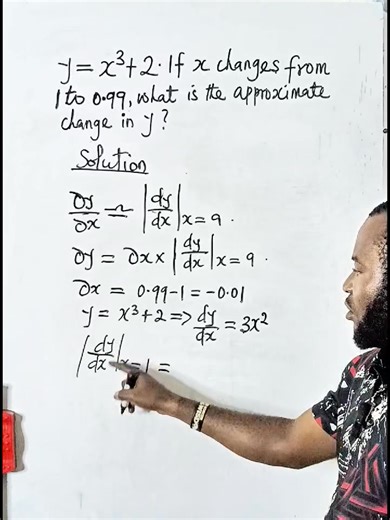 y = x³+2. If x changes from
1 to 0.99, what is the approximate
change in y?
Solution
∂y/∂x ≃ |dy/dx| x=9.
∂y = ∂x × |dy/dx| x=9.
∂x = 0.99-1 = -0.01
y = x³+2 => dy/dx = 3x²
|dy/dx| x=1 =